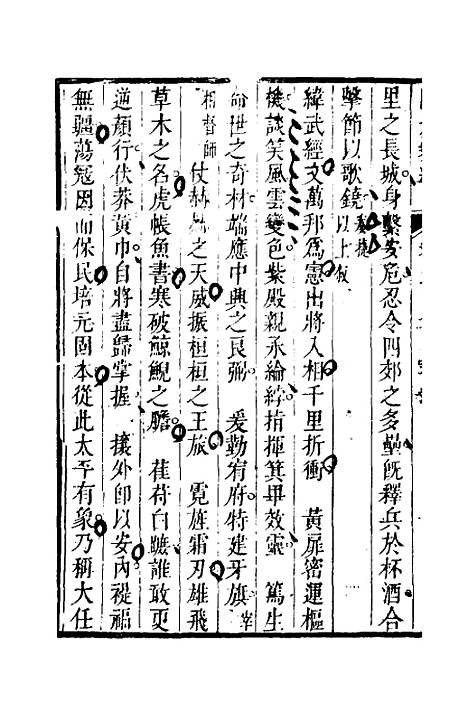 里之長城身繫安危忍令四郊之多壘旣釋兵於杯酒合
擊節以歌鐃 以上敍奏捷
緯武經文萬邦爲憲出將入相千里折衝 黃扉密運樞
機談笑風雲變色紫殿親承綸綍指揮箕畢效靈 篤生
命世之奇材端應中興之良弼 爰勤宥府特建牙旗 宰
相督師
仗赫赫之天威振桓桓之王旅 霓旌霜刃雄飛
草木之名虎帳魚書寒破鯨鯢之膽 萑苻白曕誰敢更
逆顏行伏莽黃巾自將盡歸掌握 攘外卽以安內褆福
無疆蕩寇因而保民培元固本從此太平有象乃稱大任